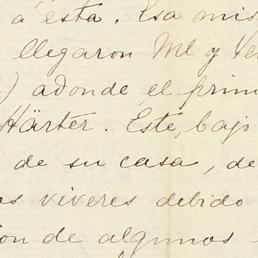 a esta. Esa mis
llegaron Ml y Ve
) adonde el prim
Härter. Este, bajo
de su casa, de
os viveres debido
ion de algunos